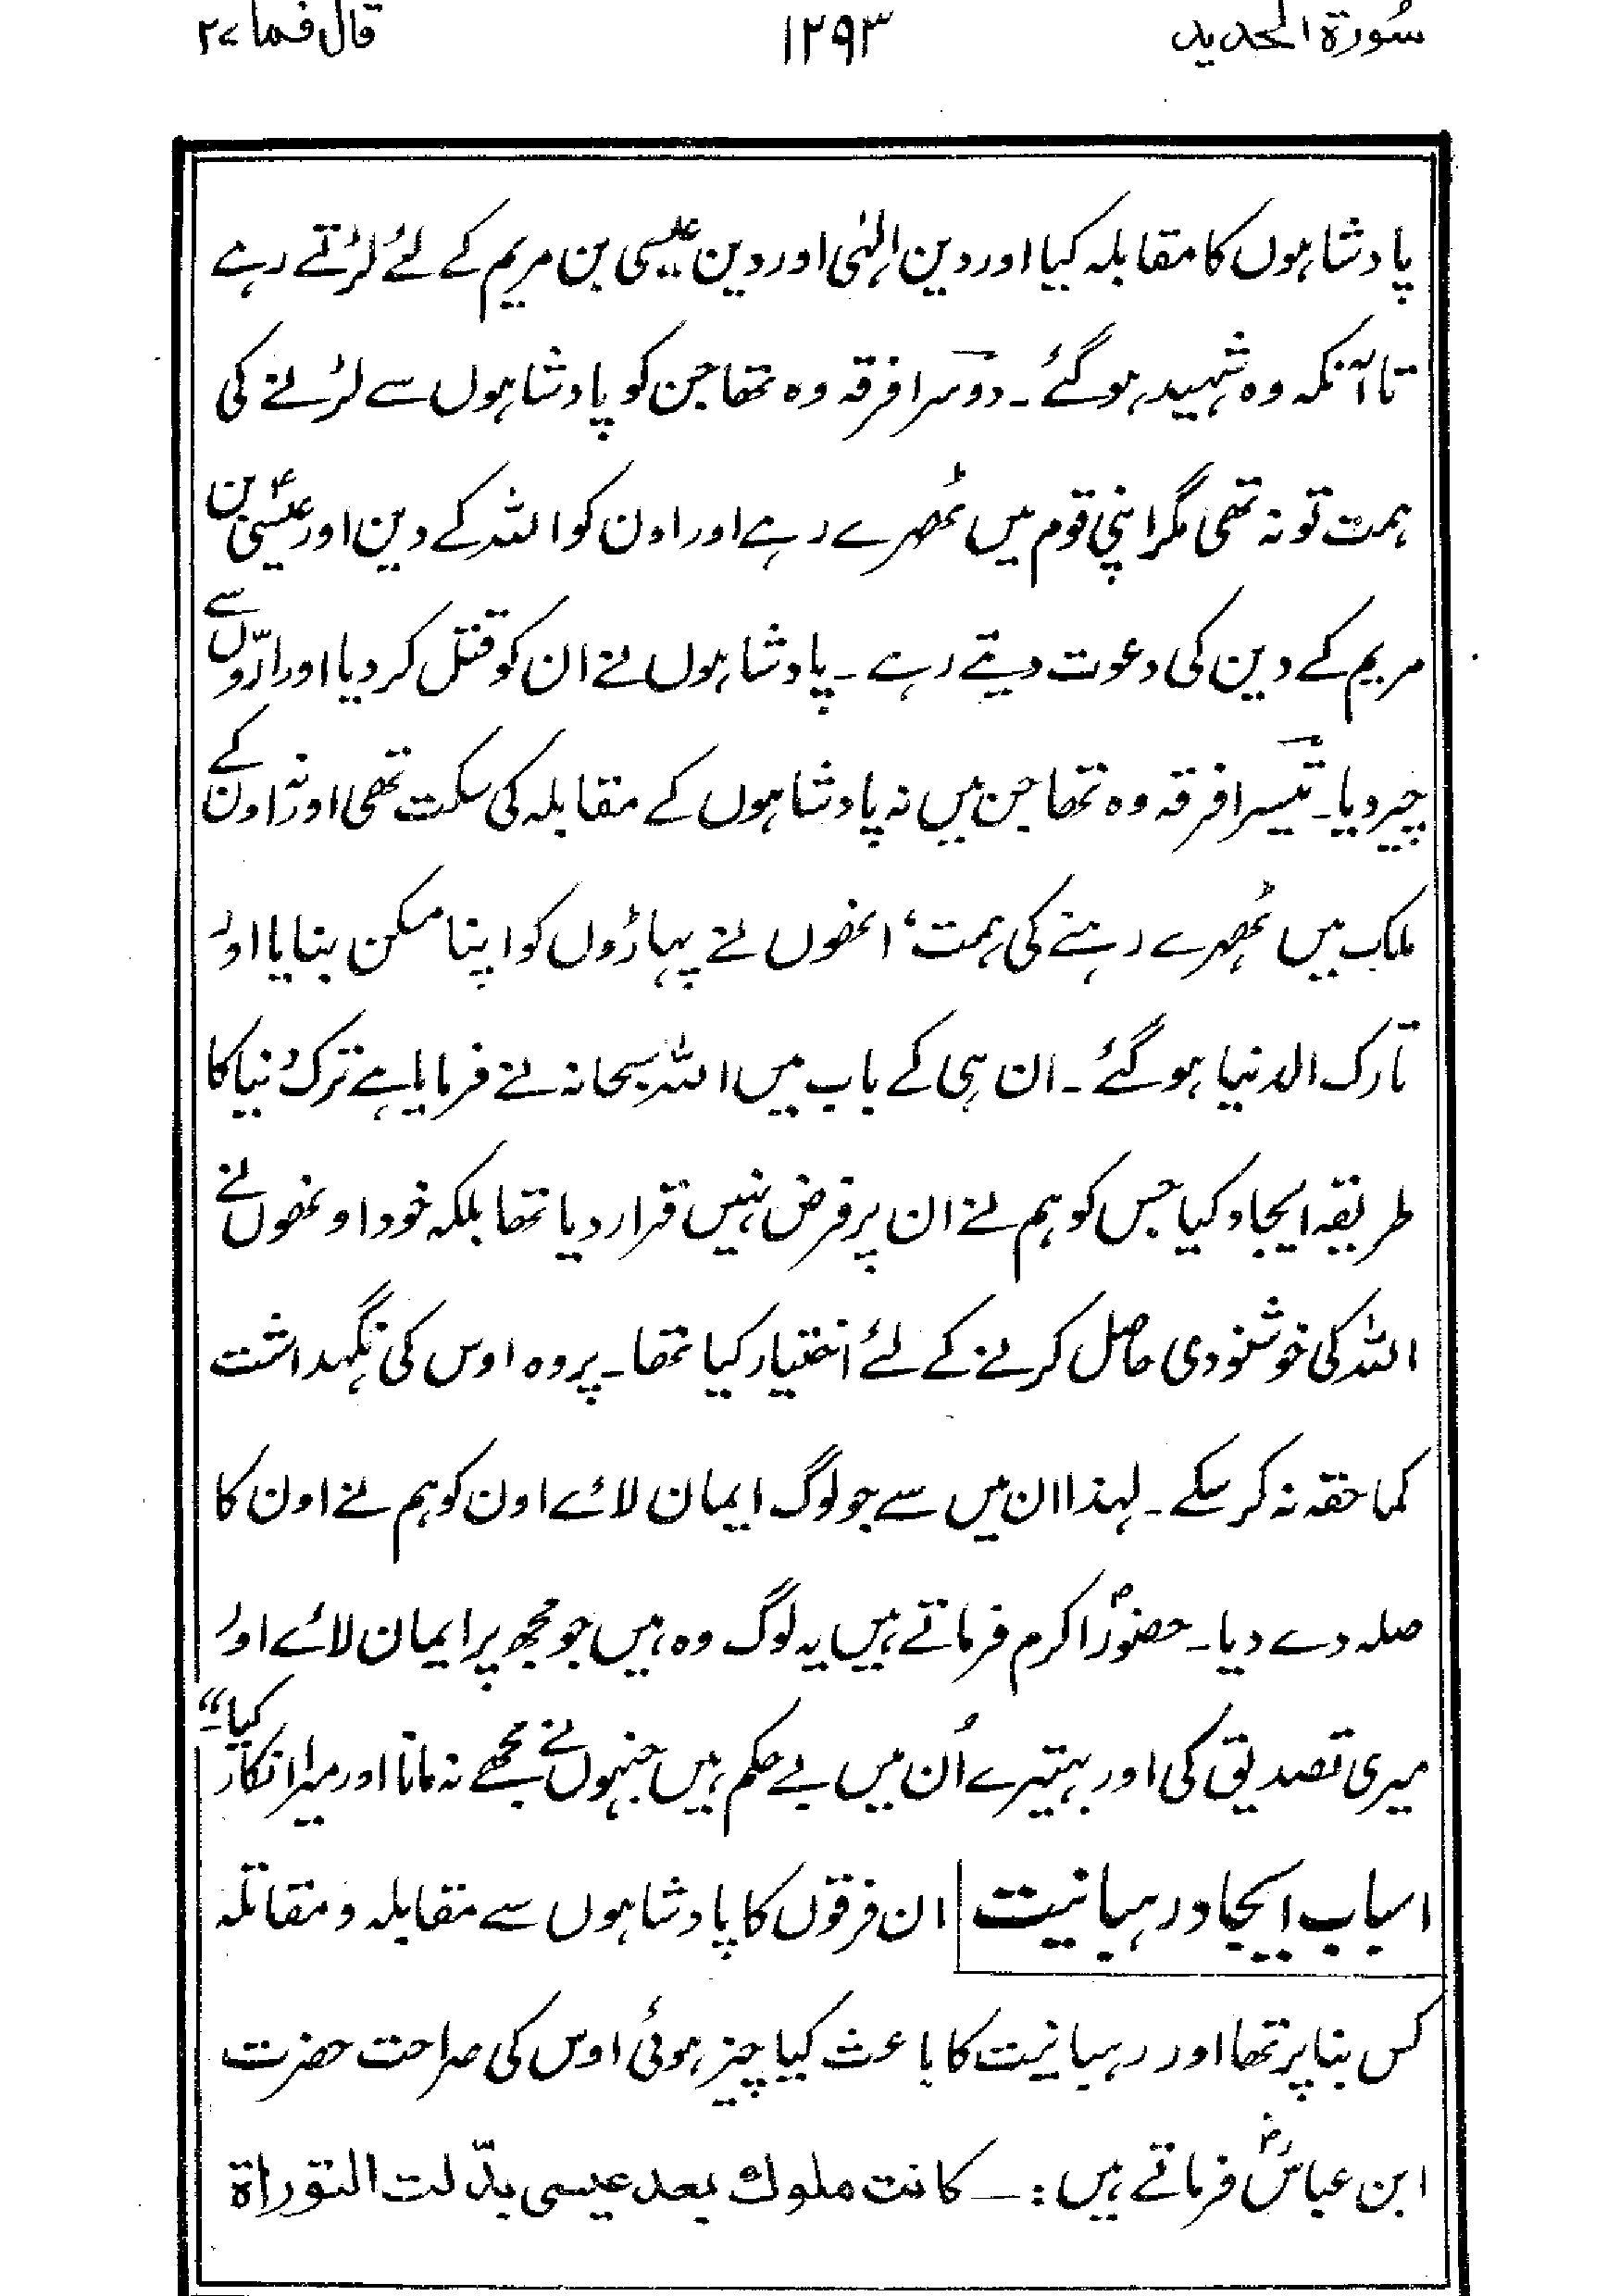 سُورۃ الحدید ۱۲۹۳ قال فما ۲۷
پادشاہوں کا مقابلہ کیا اور دین الہٰی اور دین عیسیٰ بن مریم کے لئے لڑتے رہے
تا آنکہ وہ شہید ہو گئے ۔ دوسرا فرقہ وہ تھا جن کو پادشاہوں سے لڑنے کی
ہمت تو نہ تھی مگر اپنی قوم میں ٹھہرے رہے اور اون کو اللہ کے دین اور عیسیٰؑ بن
مریم کے دین کی دعوت دیتے رہے ۔ پادشاہوں نے ان کو قتل کر دیا اور ارّوں سے
چیر دیا ۔ تیسرا فرقہ وہ تھا جن میں نہ پادشاہوں کے مقابلہ کی سکت تھی اور نہ اون کے
ملک میں ٹھہرے رہنے کی ہمت، انھوں نے پہاڑوں کو اپنا مسکن بنایا اور
تارک الدنیا ہو گئے ۔ ان ہی کے باب میں اللہ سبحانہ نے فرمایا ہے ترک دُنیا کا
طریقہ ایجاد کیا جس کو ہم نے ان پر فرض نہیں قرار دیا تھا بلکہ خود اونھوں نے
اللہ کی خوشنودی حاصل کرنے کے لئے اختیار کیا تھا ۔ پر وہ اوس کی نگہداشت
کما حقہ نہ کر سکے ۔ لہذا ان میں سے جو لوگ ایمان لائے اون کو ہم نے اون کا
صلہ دے دیا ۔ حضورؐ اکرم فرماتے ہیں یہ لوگ وہ ہیں جو مجھ پر ایمان لائے اور
میری تصدیق کی اور بہتیرے اُن میں بے حکم ہیں جنہوں نے مجھے نہ مانا اور میرا انکار کیا ۔“
اسباب ایجاد رہبانیت ان فرقوں کا پادشاہوں سے مقابلہ و مقاتلہ
کس بنا پر تھا اور رہبانیت کا باعث کیا چیز ہوئی اوس کی صراحت حضرت
ابن عباسؓ فرماتے ہیں : ــ کانت ملوك بعد عیسی بدّلت التوراۃ